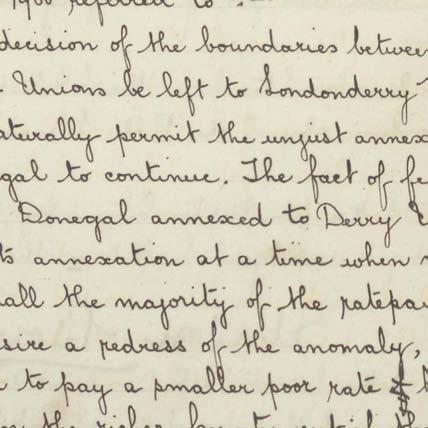 1900 referred to :-
decision of the boundaries betwee
. Unions be left to Londonderry
aturally permit the unjust annex
gal to continue. The fact of
Donegal annexed to Derry
annexation at a time when
all the majority of the ratepa
sire a redress of the anomaly,
to pay a smaller poor rate
the richer